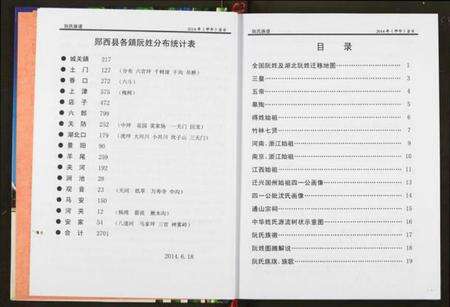 阮氏族谱
2014年(甲午)首卷
郧西县各鎮阮姓分布统计表
城关鎮 217
土门 127 (分布 六官坪 干沟 吊桥)
香口 272 (六斗)
上津 375 (槐树)
店子 472
六郎 799
关防 252 (中坪 花园 一天门 回龙)
湖北口 179 (虎坪 大川川 小川川 三天门)
景阳 96
羊尾 259
夹河 192
涧池 28
观音 23 (天河 纸草 万寿寺 中沟)
马安 150
河夹 12
安家 54 (八道河 马家坪 三官)
合计 2701
2014.6.18
阮氏族谱
2014年(甲午)首卷
目录
全国阮姓及湖北阮姓迁移地图 1
三皇 3
五帝 4
皋陶 5
得姓始祖 6
竹林七贤 7
河南.浙江始祖 8
南京.浙江始祖 9
江西始祖 10
迁兴国州始祖四一公画像 11
四一公妣沈氏画像 12
通山宗祠 13
中华姓氏源流树状示意图 16
阮氏族徽 17
阮姓图腾解说 18
阮氏族旗.族歌 19